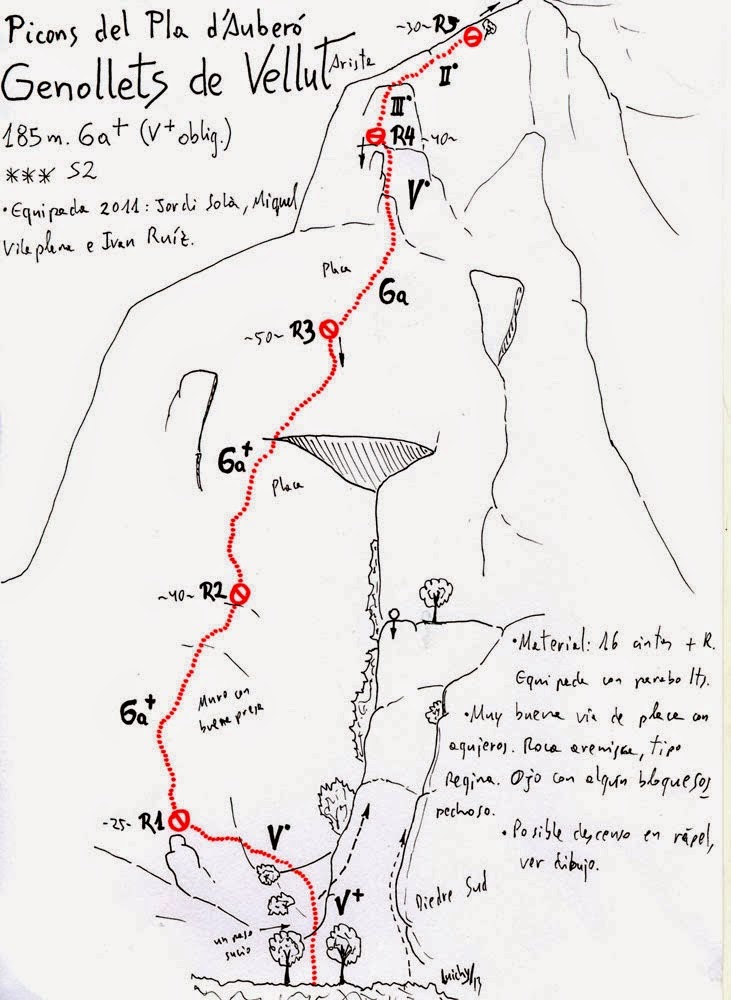 Picons del Pla d'Auberó
Genollets de Vellut
185 m. 6a+ (V+ oblig.)
*** S2
• Equipada 2011: Jordi Solà, Miquel
Vilaplana e Ivan Ruíz.
Arista
~30~ R5
II°
III°
R4 ~40~
V°
Placa
6a
~50~ R3
6a+
Placa
~40~ R2
6a+
Muro con
buena presa
~25~ R1
V°
V+
un paso
sucio
Diedre Sud
• Material: 16 cintas + R.
Equipada con parabolts.
• Muy buena vía de placa con
agujeros. Roca arenisca, tipo
Regina. Ojo con algún bloque sos
pechoso.
• Posible descenso en rápel,
ver dibujo.
Luichy/13